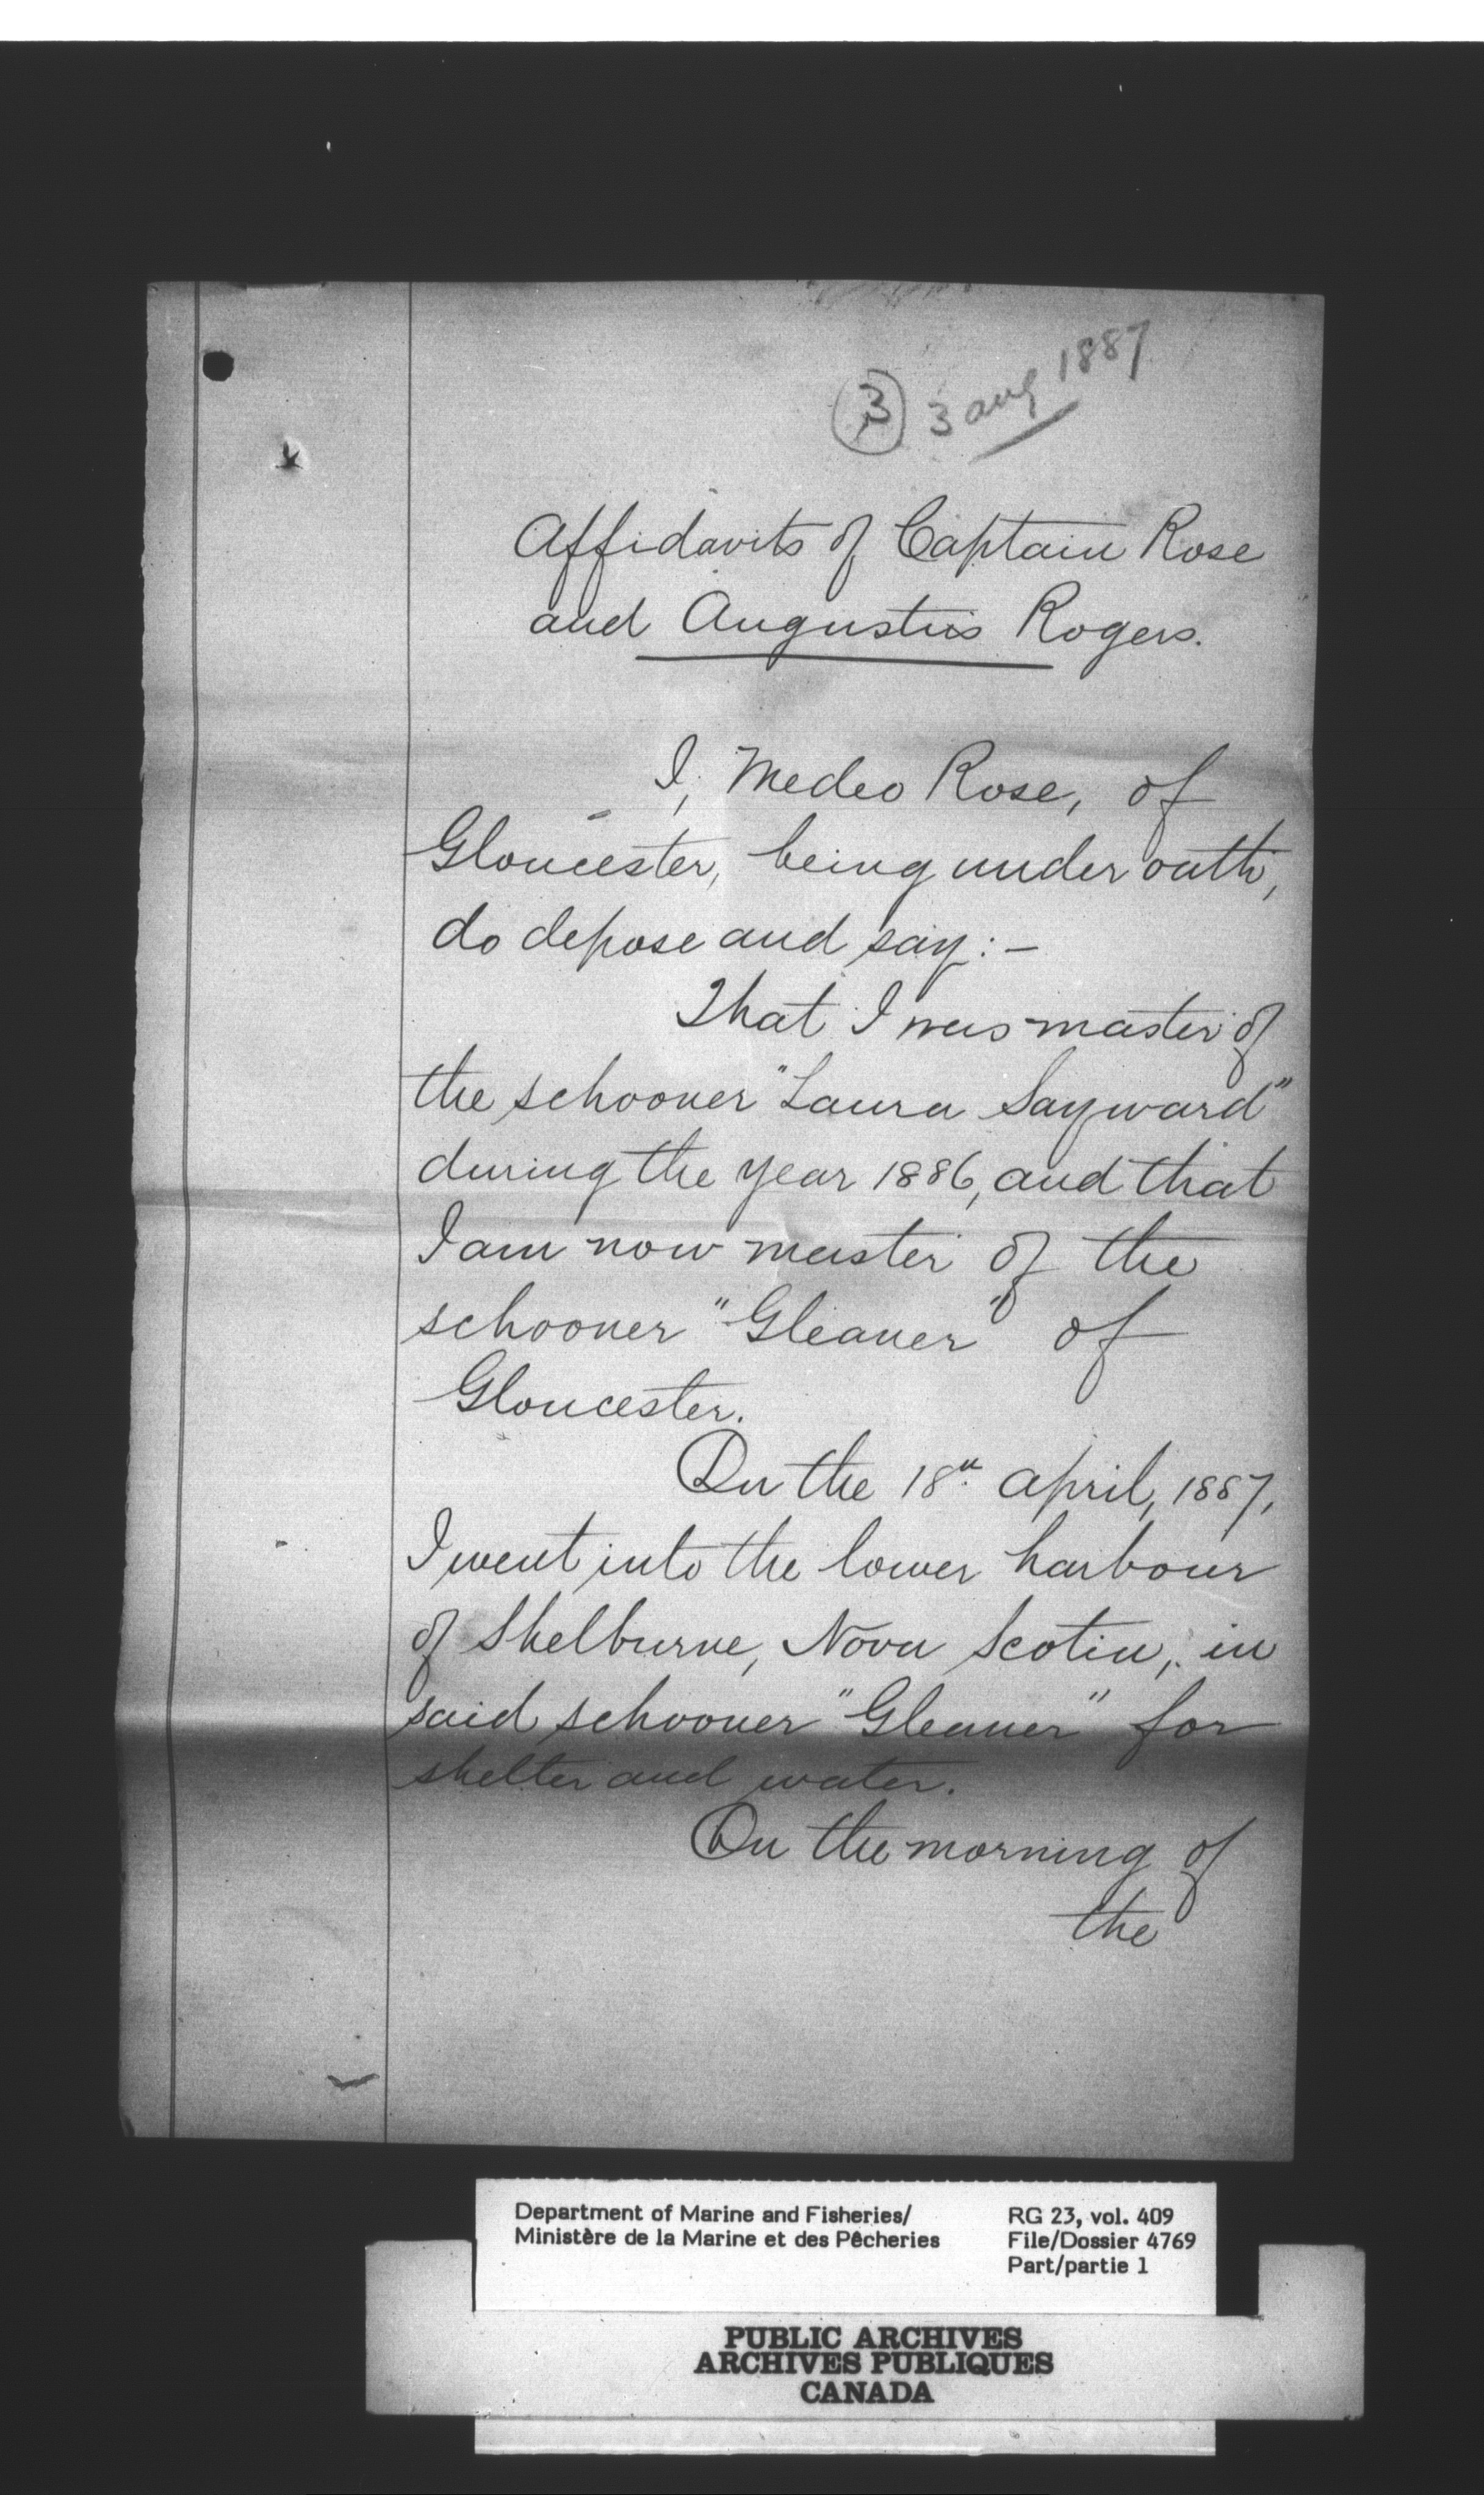 3 3 Aug 1887
Affidavits of Captain Rose
and Augustus Rogers.
I, Medeo Rose, of
Gloucester, being under oath,
do depose and say:—
That I was master of
the schooner "Laura Sayward"
during the year 1886, and that
I am now master of the
schooner "Gleaner" of
Gloucester.
On the 18th April, 1887,
I went into the lower harbour
of Shelburne, Nova Scotia, in
said schooner "Gleaner" for
shelter and water.
On the morning of
the
Department of Marine and Fisheries/ RG 23, vol. 409
Ministère de la Marine et des Pêcheries File/Dossier 4769
Part/partie 1
PUBLIC ARCHIVES
ARCHIVES PUBLIQUES
CANADA